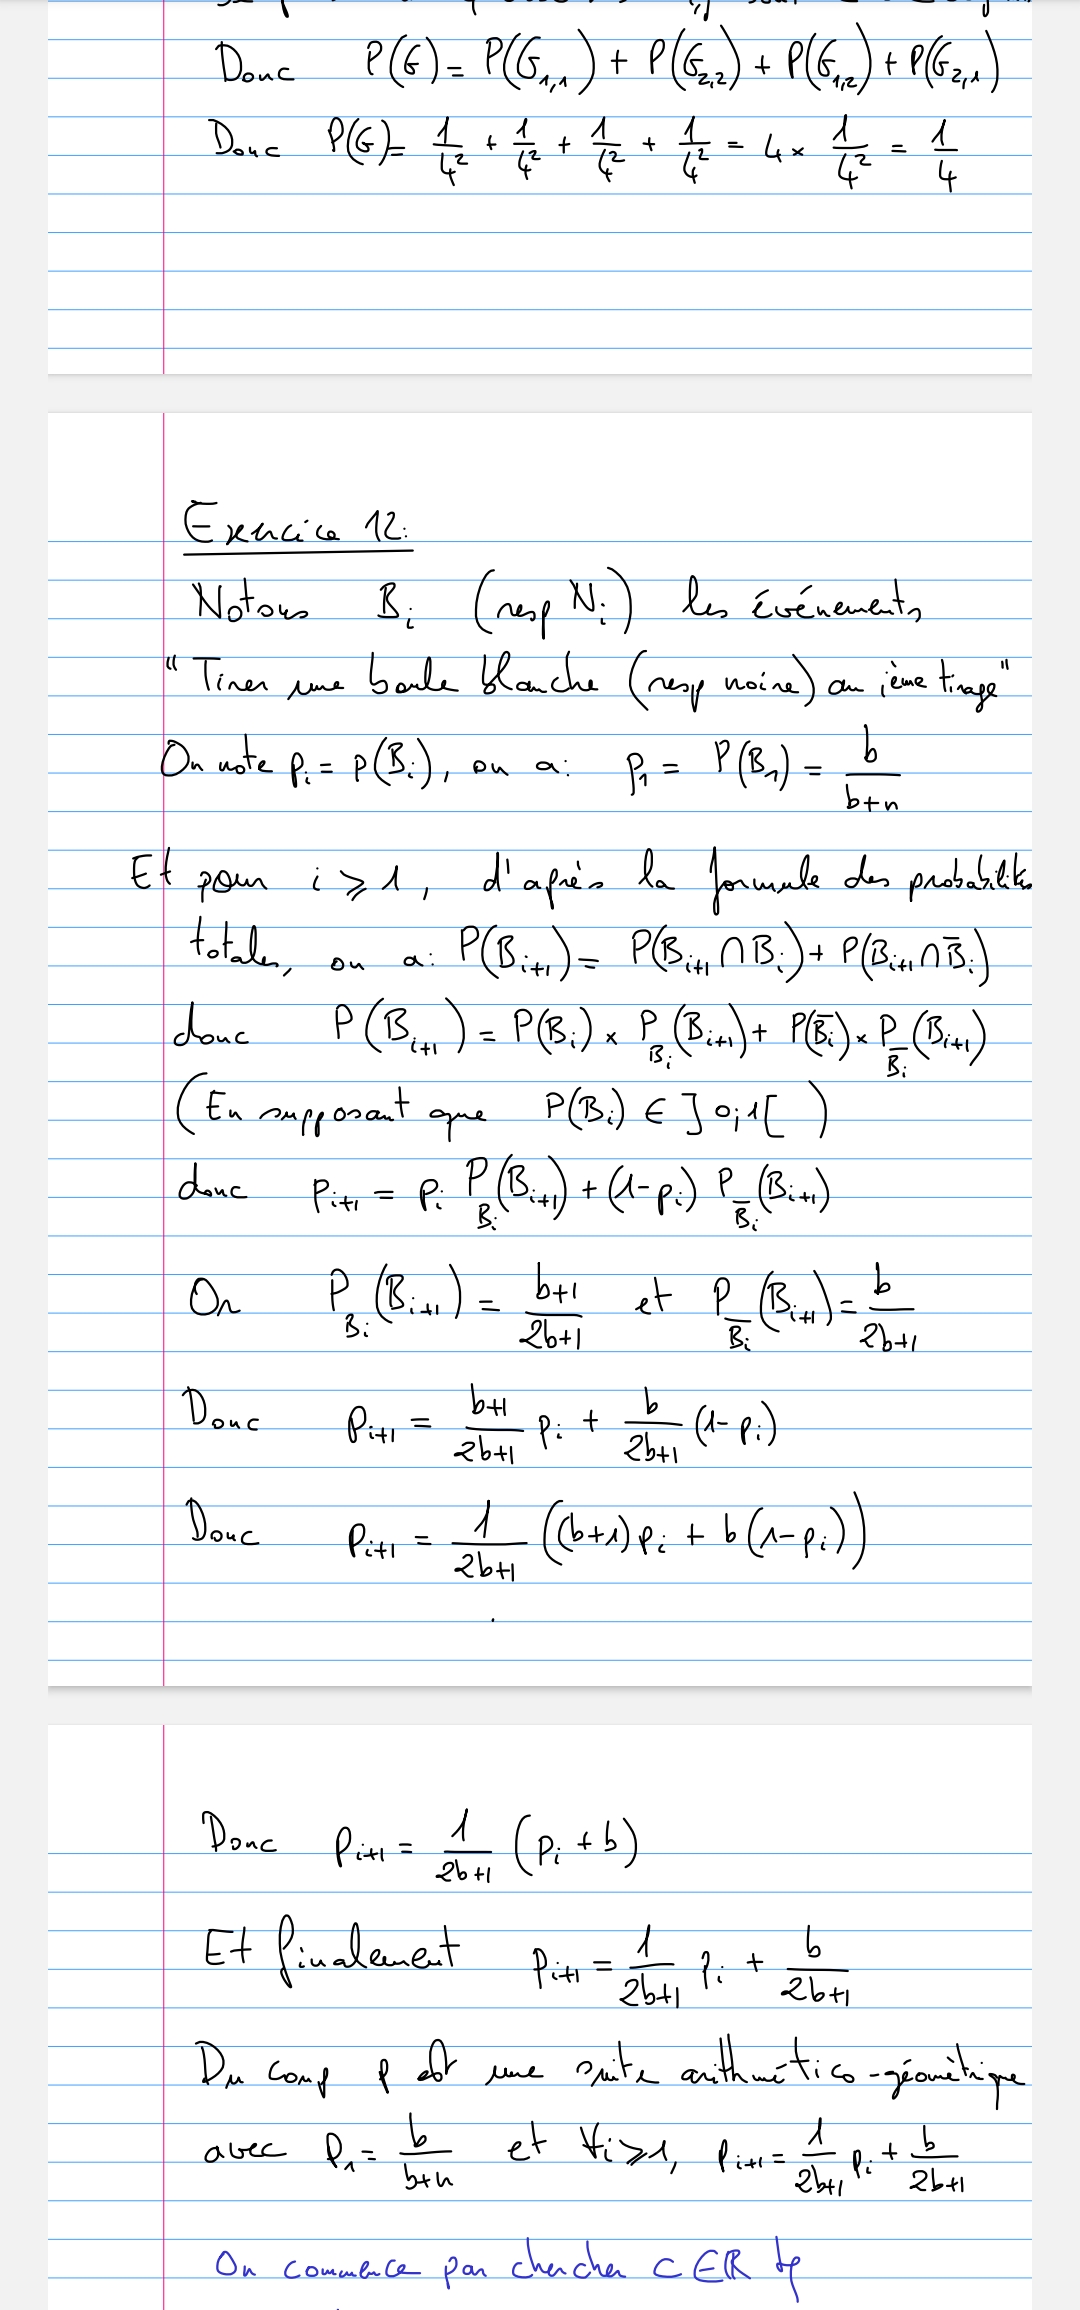 Donc P(G) = P(G₁,₁) + P(G₂,₂) + P(G₁,₂) + P(G₂,₁)
Donc P(G) = 1/4² + 1/4² + 1/4² + 1/4² = 4 × 1/4² = 1/4
Exercice 12:
Notons Bᵢ (resp Nᵢ) les événements
"Tirer une boule blanche (resp noire) au ième tirage"
On note pᵢ = p(Bᵢ), on a: p₁ = P(B₁) = b/(b+n)
Et pour i ⩾ 1, d'après la formule des probabilités
totales, on a: P(Bᵢ₊₁) = P(Bᵢ₊₁ ∩ Bᵢ) + P(Bᵢ₊₁ ∩ B̄ᵢ)
donc P(Bᵢ₊₁) = P(Bᵢ) × P_Bᵢ(Bᵢ₊₁) + P(B̄ᵢ) × P_B̄ᵢ(Bᵢ₊₁)
(En supposant que P(Bᵢ) ∈ ]0;1[ )
donc pᵢ₊₁ = pᵢ P_Bᵢ(Bᵢ₊₁) + (1-pᵢ) P_B̄ᵢ(Bᵢ₊₁)
Or P_Bᵢ(Bᵢ₊₁) = (b+1)/(2b+1) et P_B̄ᵢ(Bᵢ₊₁) = b/(2b+1)
Donc pᵢ₊₁ = (b+1)/(2b+1) pᵢ + b/(2b+1) (1-pᵢ)
Donc pᵢ₊₁ = 1/(2b+1) ((b+1)pᵢ + b(1-pᵢ))
Donc pᵢ₊₁ = 1/(2b+1) (pᵢ + b)
Et finalement pᵢ₊₁ = 1/(2b+1) pᵢ + b/(2b+1)
Du coup p est une suite arithmético-géométrique
avec p₁ = b/(b+n) et ∀i⩾1, pᵢ₊₁ = 1/(2b+1) pᵢ + b/(2b+1)
On commence par chercher C ∈ ℝ tq